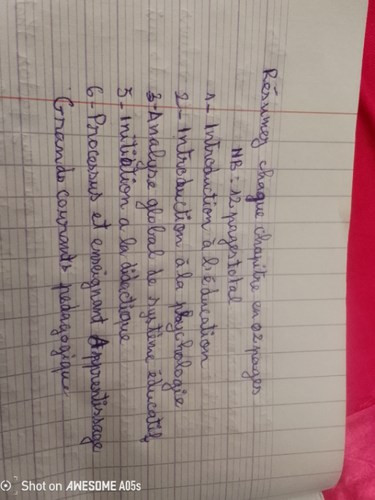 Résumez chaque chapitre en 02 pages
NB : 12 pages total
1- Introduction à l'éducation
2- Introduction à la psychologie
3- Analyse global de système éducatif
5- initiation a la didactique
6- Processus et enseignant Apprentissage
Grands courants pédagogique
Shot on AWESOME A05s